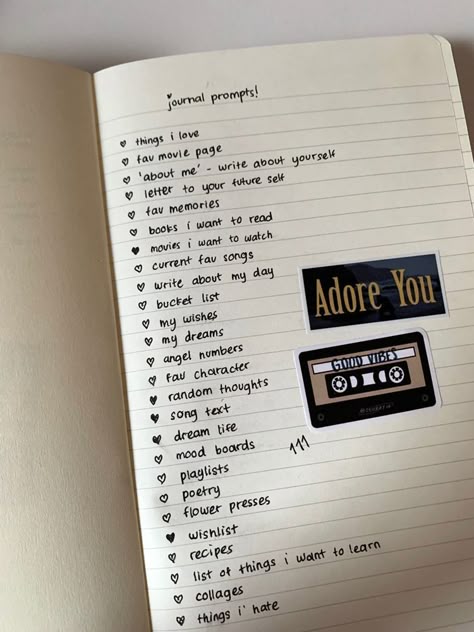 journal prompts!
things i love
fav movie page
'about me' - write about yourself
letter to your future self
fav memories
books i want to read
movies i want to watch
current fav songs
write about my day
bucket list
my wishes
my dreams
angel numbers
fav character
random thoughts
song text
dream life
mood boards
playlists
poetry
flower presses
wishlist
recipes
list of things i want to learn
collages
things i hate
Adore You
GOOD VIBES
111